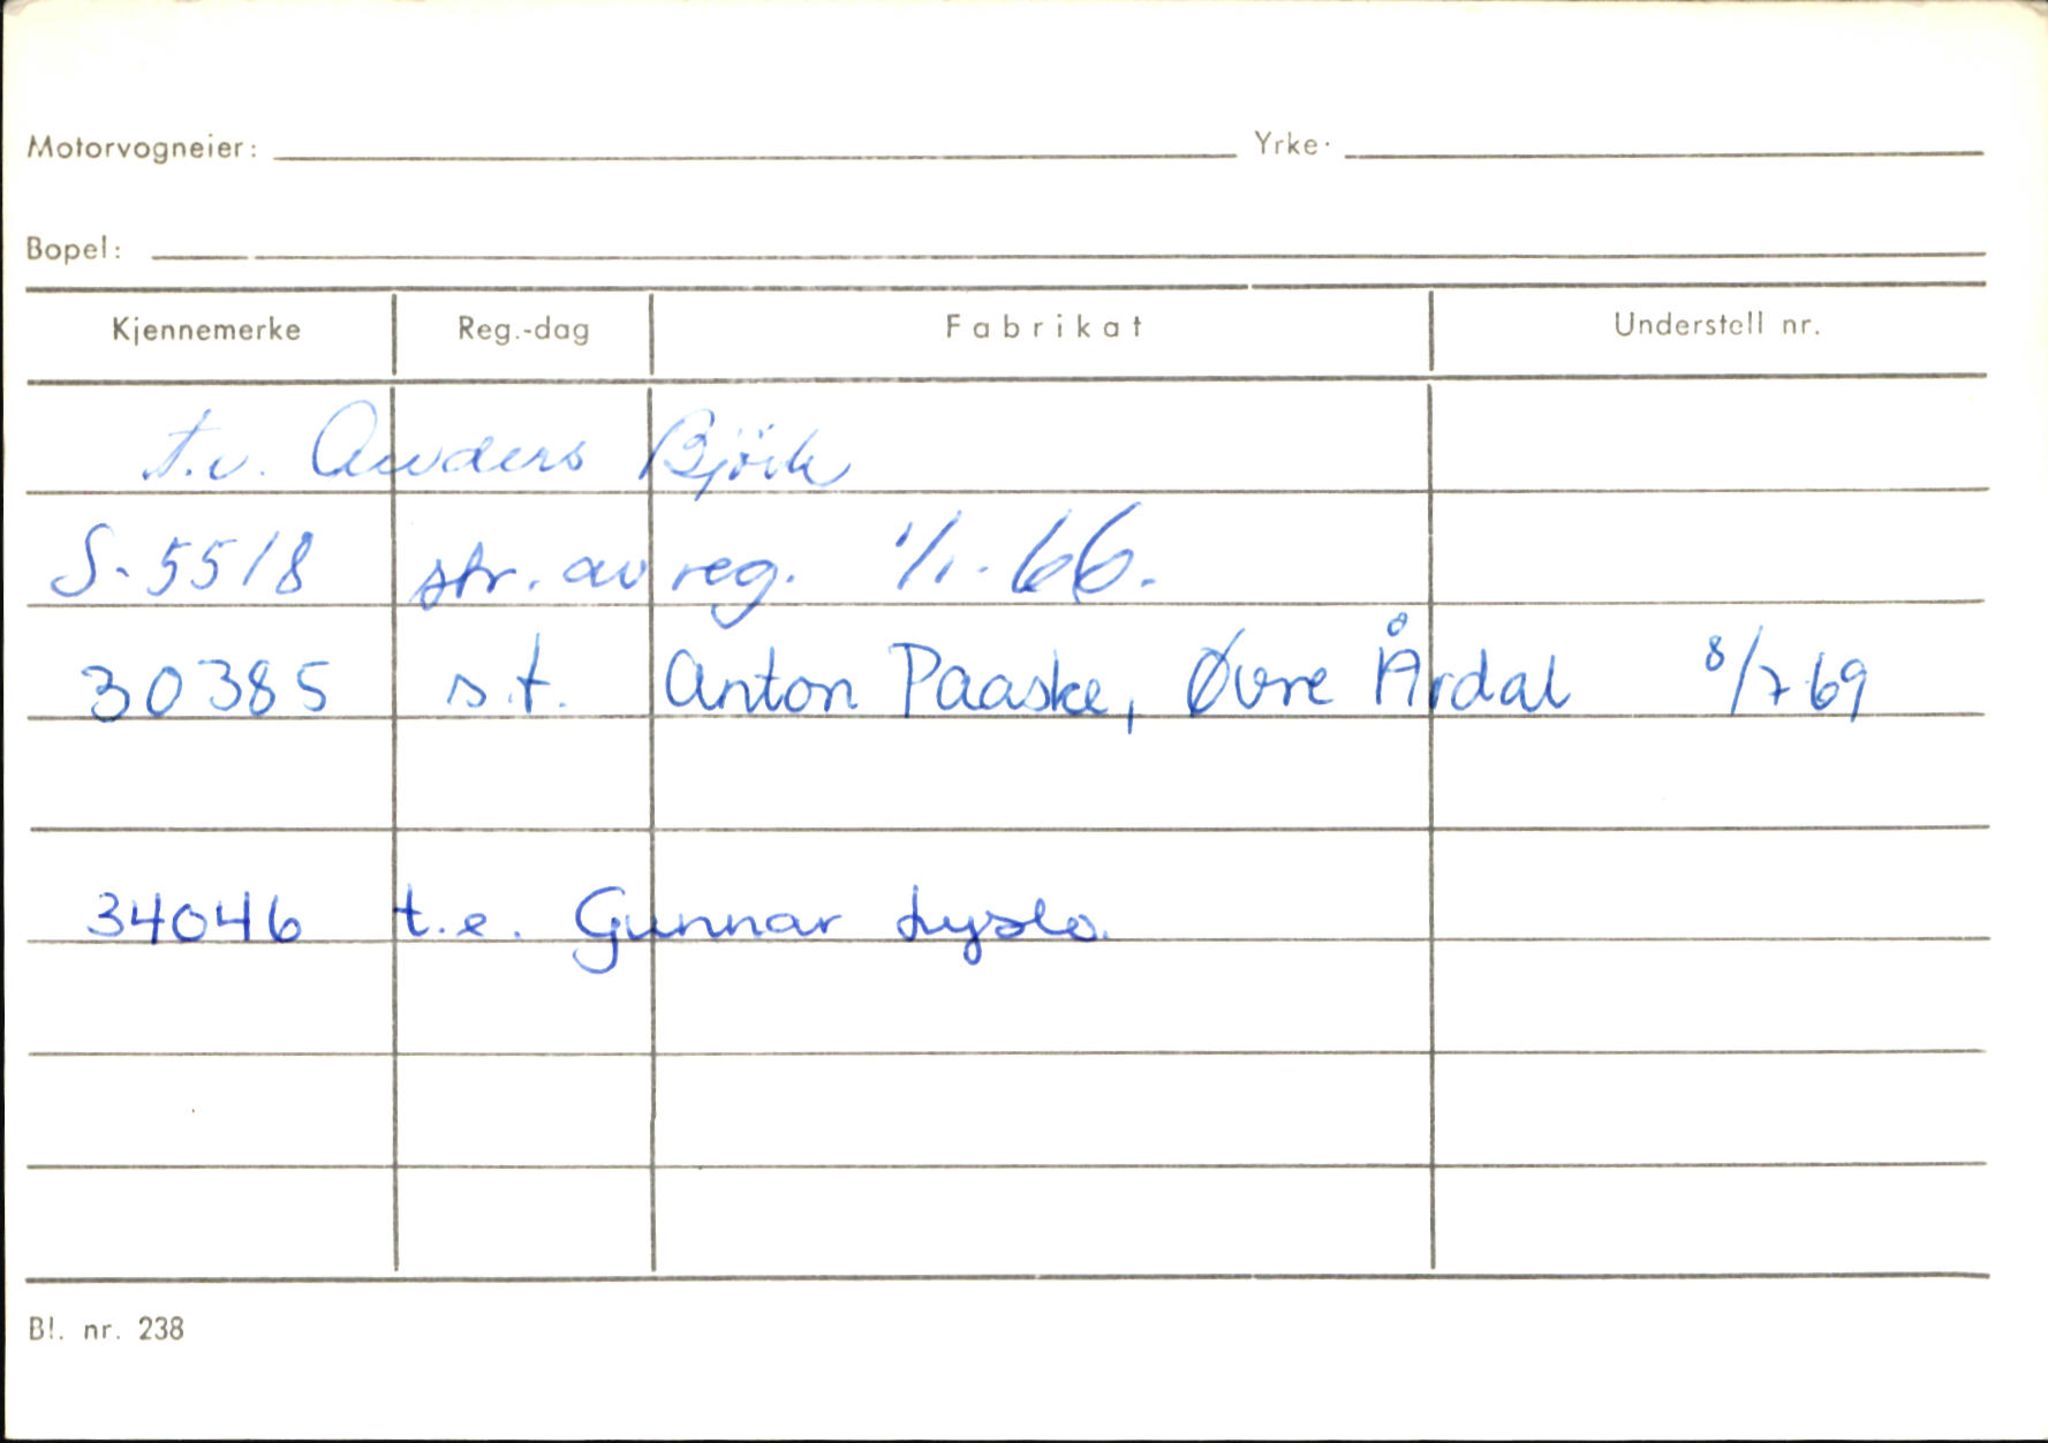 Motorvogneier: Yrke.
Bopel:
Kjennemerke Reg.-dag Fabrikat Understell nr.
t.v. Anders Björk
S-5518 str. av reg. 1/1-66.
30385 s.t. Anton Paaske, Øvre Årdal 8/7 69
34046 t.e. Gunnar Lyslo.
Bl. nr. 238